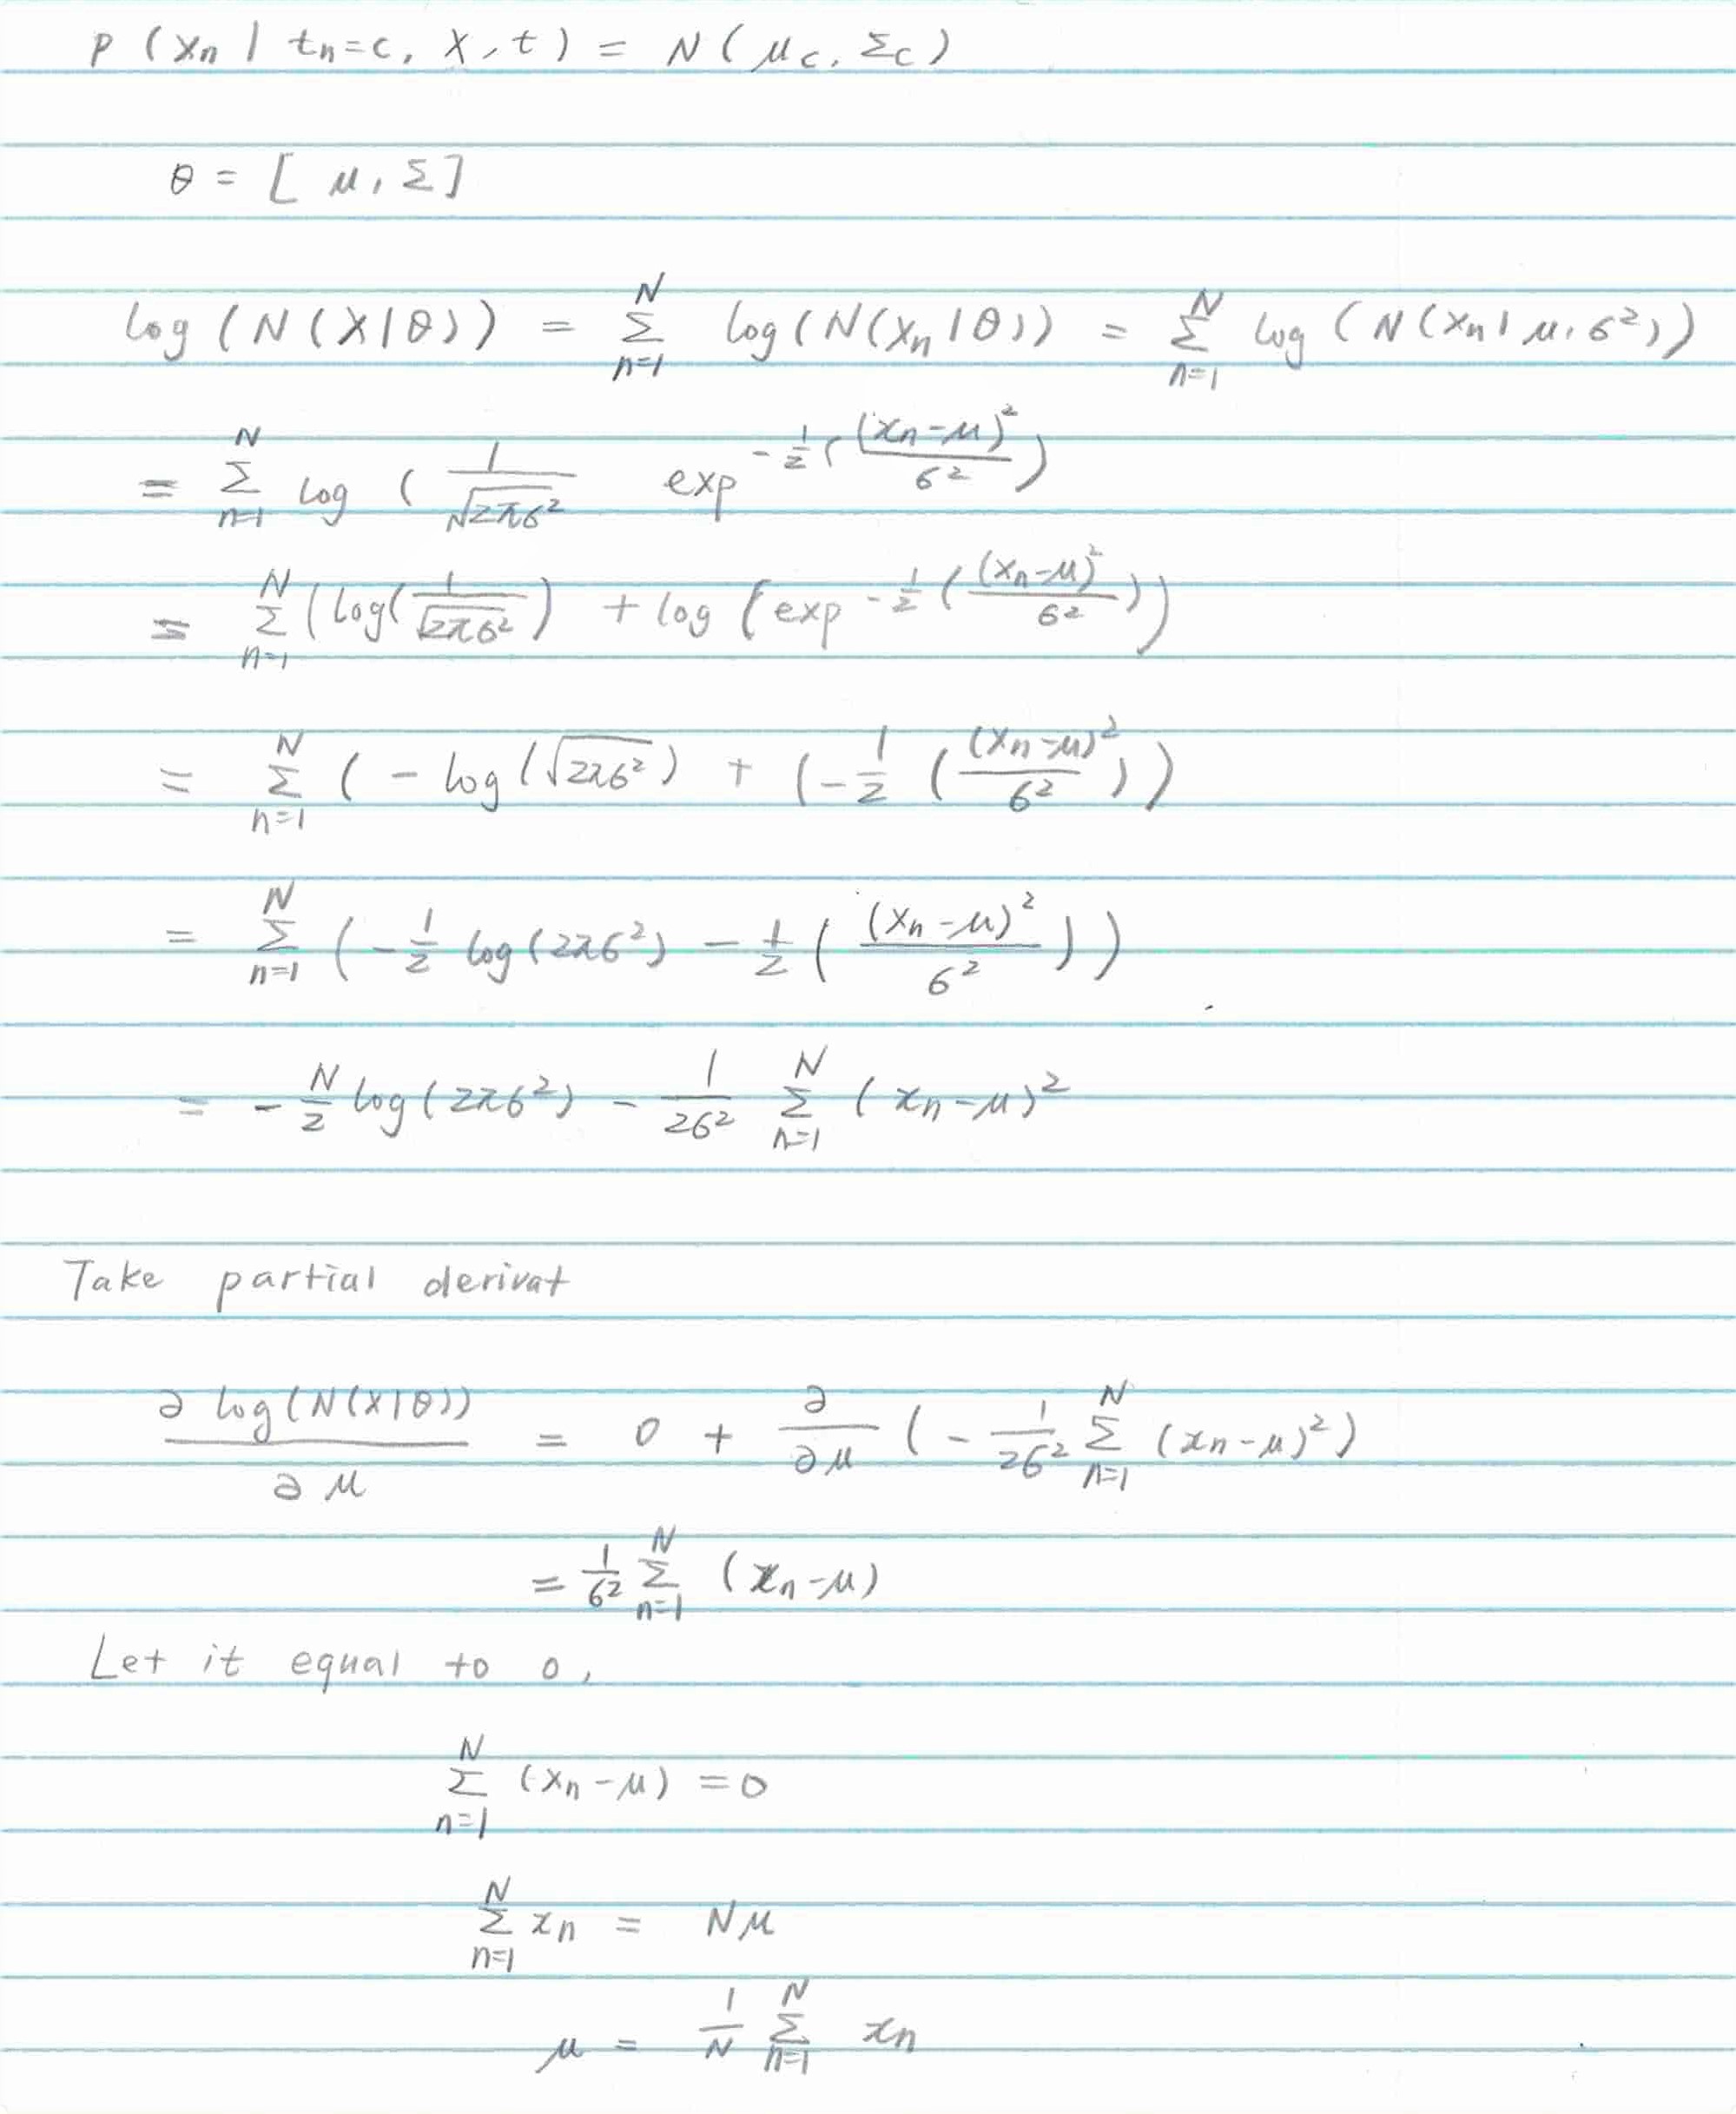 p ( xn | tn=c, X, t ) = N ( μc, Σc )
θ = [ μ, Σ ]
log ( N ( X | θ ) ) = Σ_{n=1}^{N} log ( N ( xn | θ ) ) = Σ_{n=1}^{N} log ( N ( xn | μ, σ² ) )
= Σ_{n=1}^{N} log ( 1/√(2πσ²) exp^{-1/2 ( (xn-μ)²/σ² )}
= Σ_{n=1}^{N} ( log ( 1/√(2πσ²) ) + log ( exp^{-1/2 ( (xn-μ)²/σ² )} ) )
= Σ_{n=1}^{N} ( - log ( √(2πσ²) ) + ( -1/2 ( (xn-μ)²/σ² ) )
= Σ_{n=1}^{N} ( -1/2 log ( 2πσ² ) - 1/2 ( (xn-μ)²/σ² ) )
= - N/2 log ( 2πσ² ) - 1/(2σ²) Σ_{n=1}^{N} ( xn-μ )²
Take partial derivat
∂ log ( N ( X | θ ) ) / ∂μ = 0 + ∂/∂μ ( - 1/(2σ²) Σ_{n=1}^{N} ( xn-μ )² )
= 1/σ² Σ_{n=1}^{N} ( xn-μ )
Let it equal to 0,
Σ_{n=1}^{N} ( xn-μ ) = 0
Σ_{n=1}^{N} xn = Nμ
μ = 1/N Σ_{n=1}^{N} xn